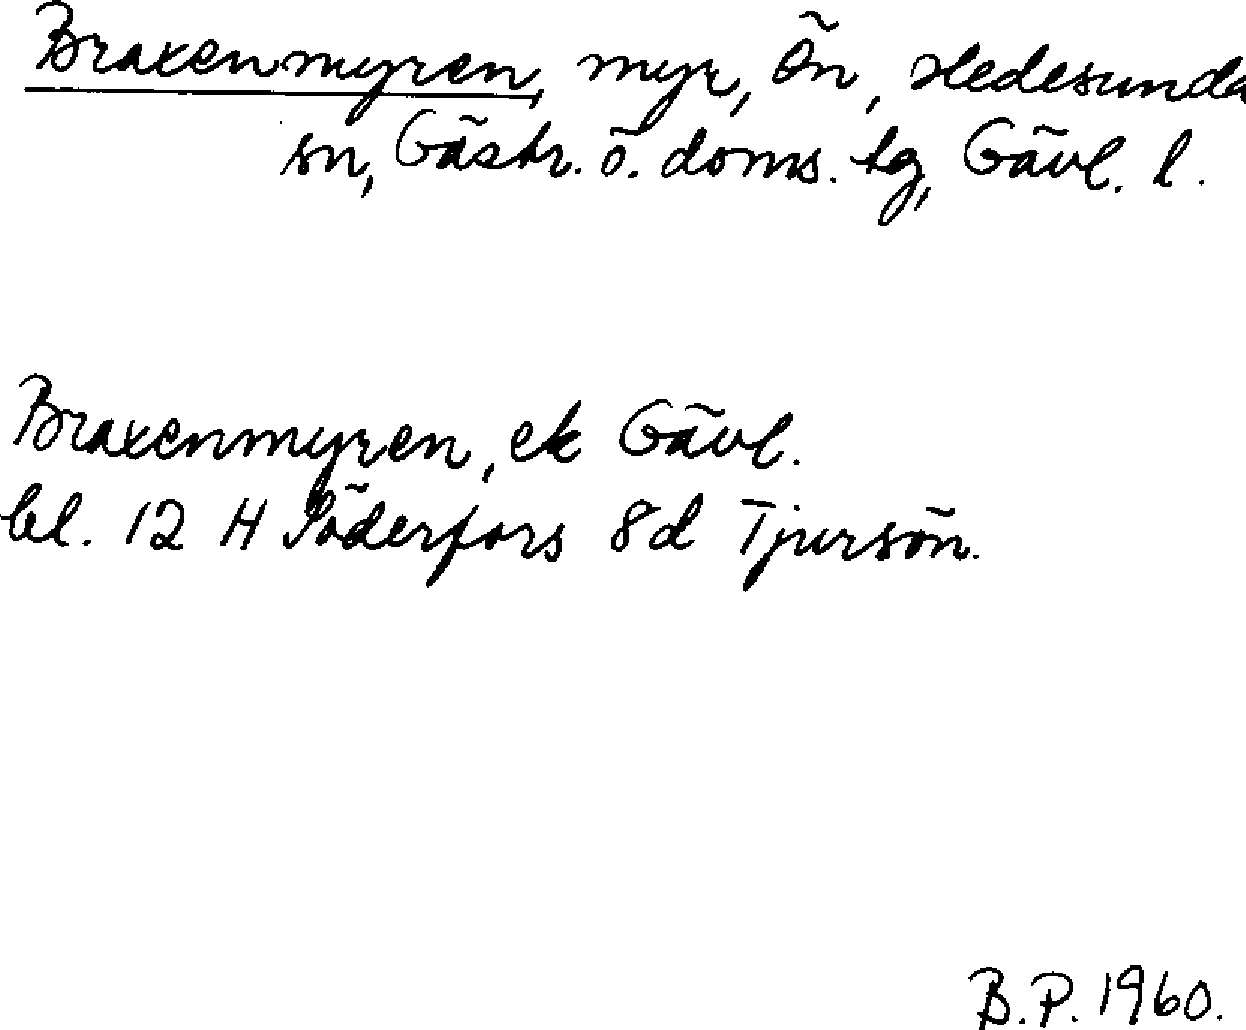 Braxenmyren, myr, Ön, Hedesunda
sn, Gästr. ö. doms. tg, Gävl. l.
Braxenmyren, ek Gävl.
bl. 12 H Söderfors 8d Tjursön.
B.P. 1960.